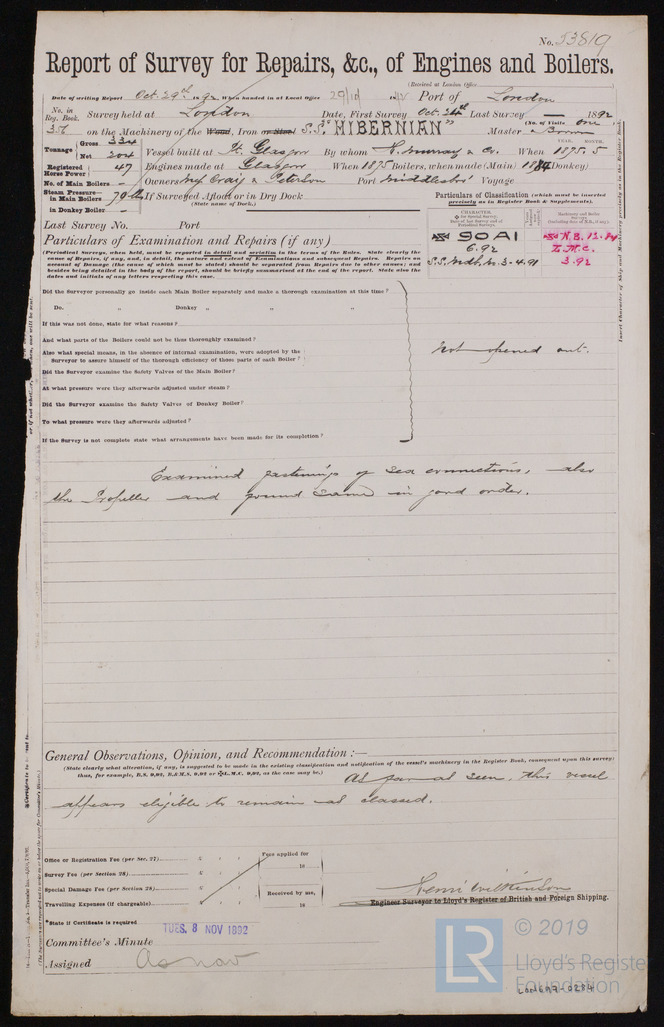 No. 53819
Report of Survey for Repairs, &c., of Engines and Boilers.
(Received at London Office
Date of writing Report Oct. 29th 1892 When handed in at Local Office 29/10 1892 Port of London
No. in Reg. Book. Survey held at London Date, First Survey Oct. 24th Last Survey — 1892
(No. of Visits one
356 on the Machinery of the Wood, Iron or Steel S.S. "HIBERNIAN" Master
Tonnage Gross 334
Net 204
Vessel built at Pt. Glasgow By whom H. Murray & Co. When 1875. 5
YEAR. MONTH.
Registered Horse Power 47 Engines made at Glasgow When 1875 Boilers, when made (Main) 1884 (Donkey)
No. of Main Boilers – Owners Craig & Peterson Port Middlesbro' Voyage
Steam Pressure— in Main Boilers 70 lbs If Surveyed Afloat or in Dry Dock
(State name of Dock.)
in Donkey Boiler –
Particulars of Classification (which must be inserted precisely as in Register Book & Supplements).
CHARACTER
Machinery and Boiler Surveys
90A1 N.B. 12.84
6.92 L.M.C.
S.S. Mdb. No. 3-4.91 3.92
Last Survey No. Port
Particulars of Examination and Repairs (if any)
(Periodical Surveys, when held, must be reported in detail and seriatim in the terms of the Rules. State clearly the
cause of Repairs, if any, and, in detail, the nature and extent of Examinations and subsequent Repairs. Repairs on
account of Damage (the cause of which must be stated) should be separated from Repairs due to other causes; and
besides being detailed in the body of the report, should be briefly summarised at the end of the report. State also the
dates and initials of any letters respecting this case.
Did the Surveyor personally go inside each Main Boiler separately and make a thorough examination at this time?
Do. „ Donkey „ „ „
If this was not done, state for what reasons?
And what parts of the Boilers could not be thus thoroughly examined?
Also what special means, in the absence of internal examination, were adopted by the
Surveyor to assure himself of the thorough efficiency of those parts of each Boiler?
not opened out.
Did the Surveyor examine the Safety Valves of the Main Boiler?
At what pressure were they afterwards adjusted under steam?
Did the Surveyor examine the Safety Valves of Donkey Boiler?
To what pressure were they afterwards adjusted?
If the Survey is not complete state what arrangements have been made for its completion?
Examined fastenings of sea connections, also
the Propeller and found same in good order.
General Observations, Opinion, and Recommendation:—
(State clearly what alteration, if any, is suggested to be made in the existing classification and notification of the vessel's machinery in the Register Book, consequent upon this survey;
thus, for example, B.S. 9,92, B.&M.S. 9,92 or L.M.C. 9,92, as the case may be.)
As far as seen, this vessel
appears eligible to remain as classed.
Office or Registration Fee (per Sec. 27) £ : : Fees applied for
Survey Fee (per Section 28) £ : : 18
Special Damage Fee (per Section 28) £ : : Received by me,
Travelling Expenses (if chargeable) £ : : 18
Henri Wilkinson
Engineer Surveyor to Lloyd's Register of British and Foreign Shipping.
*State if Certificate is required
TUES. 8 NOV 1892
Committee's Minute
Assigned As now
LR
© 2019
Lloyd's Register
Foundation
Lon697-0284